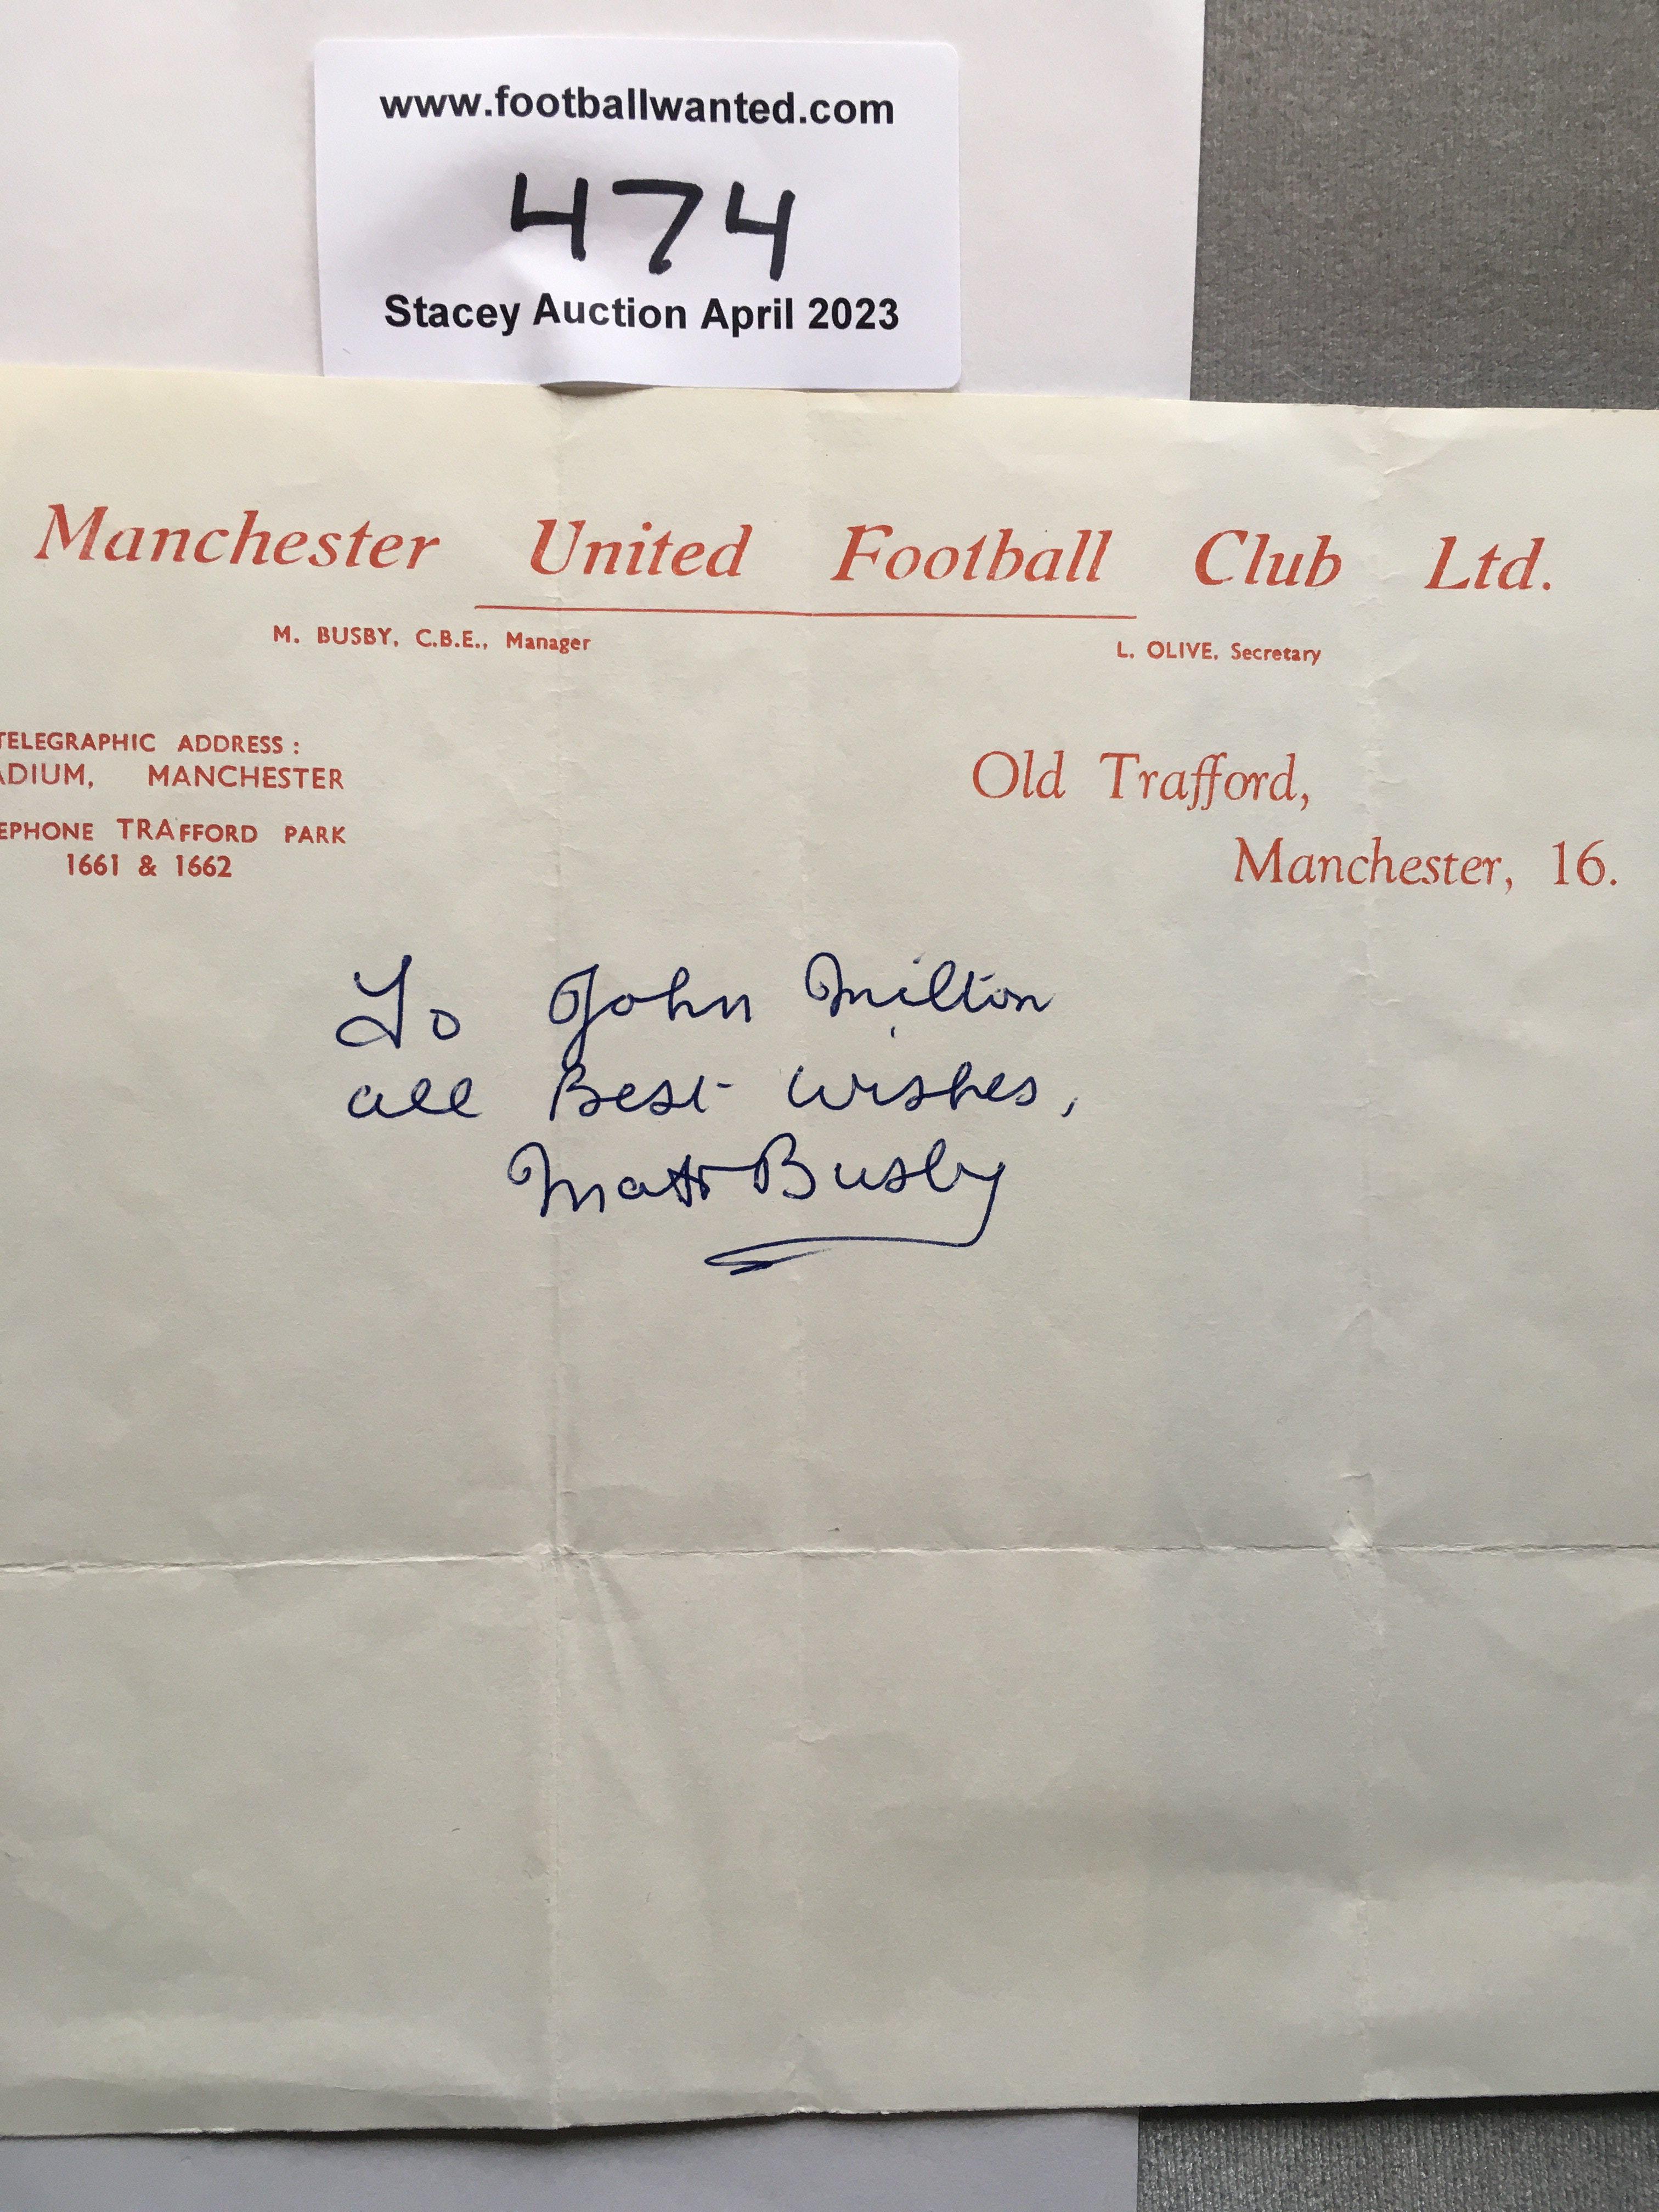 www.footballwanted.com
474
Stacey Auction April 2023
Manchester United Football Club Ltd.
M. BUSBY, C.B.E., Manager
L. OLIVE, Secretary
TELEGRAPHIC ADDRESS:
ADIUM, MANCHESTER
EPHONE TRAFFORD PARK
1661 & 1662
Old Trafford,
Manchester, 16.
To John Milton
all Best wishes,
Matt Busby